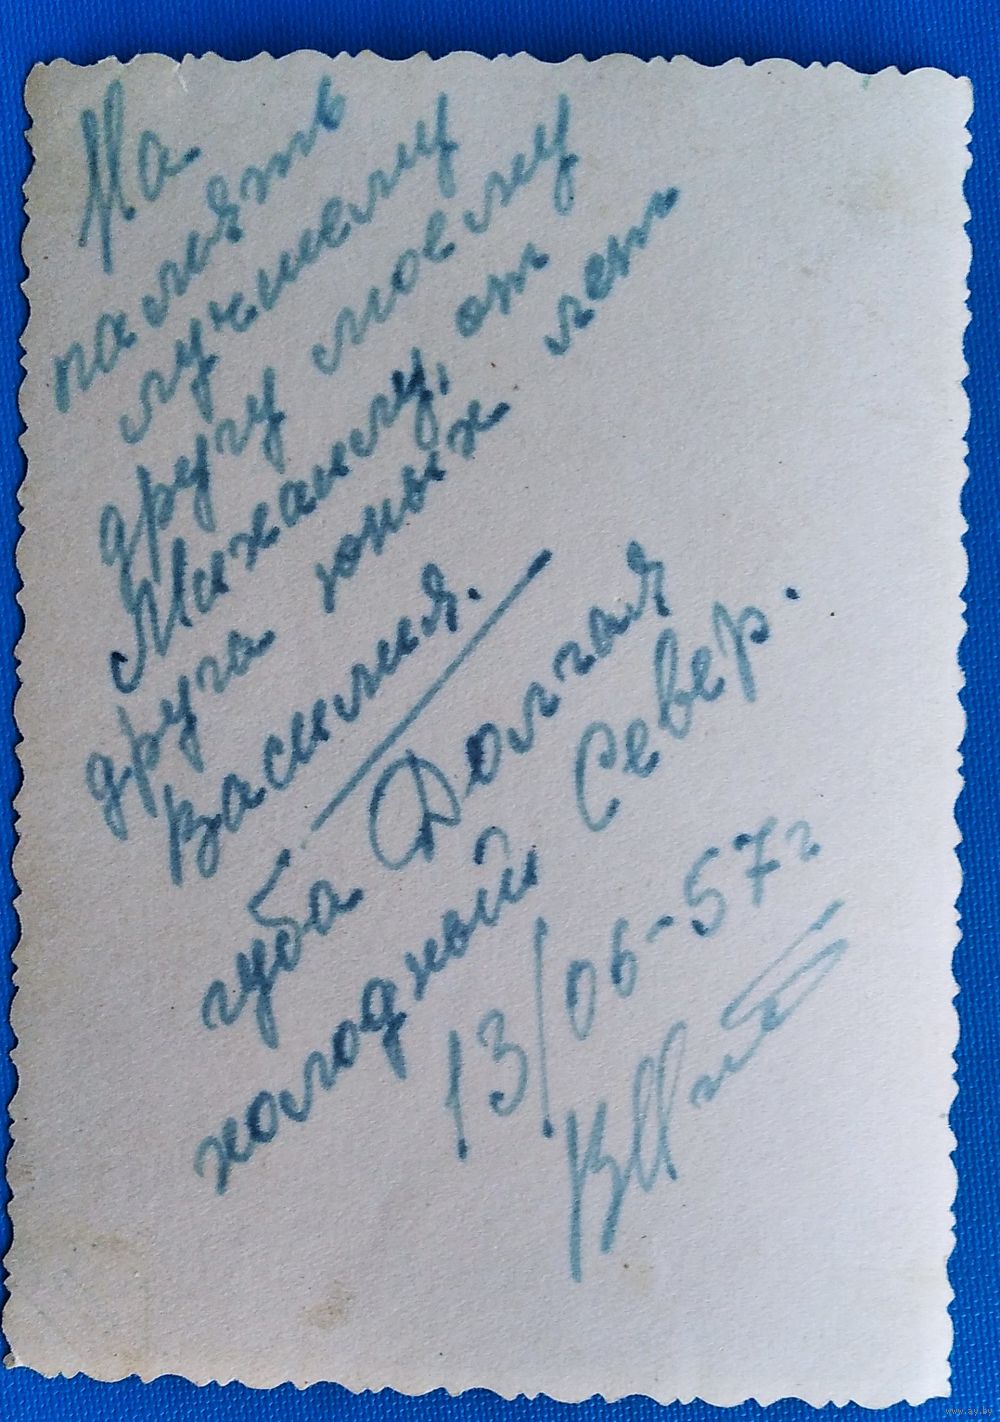 На
память
лучшему
другу моему
Михаилу, от
друга юных лет
Василия.
губа Долгая
холодный Север.
13/06-57 г
www.ay.by